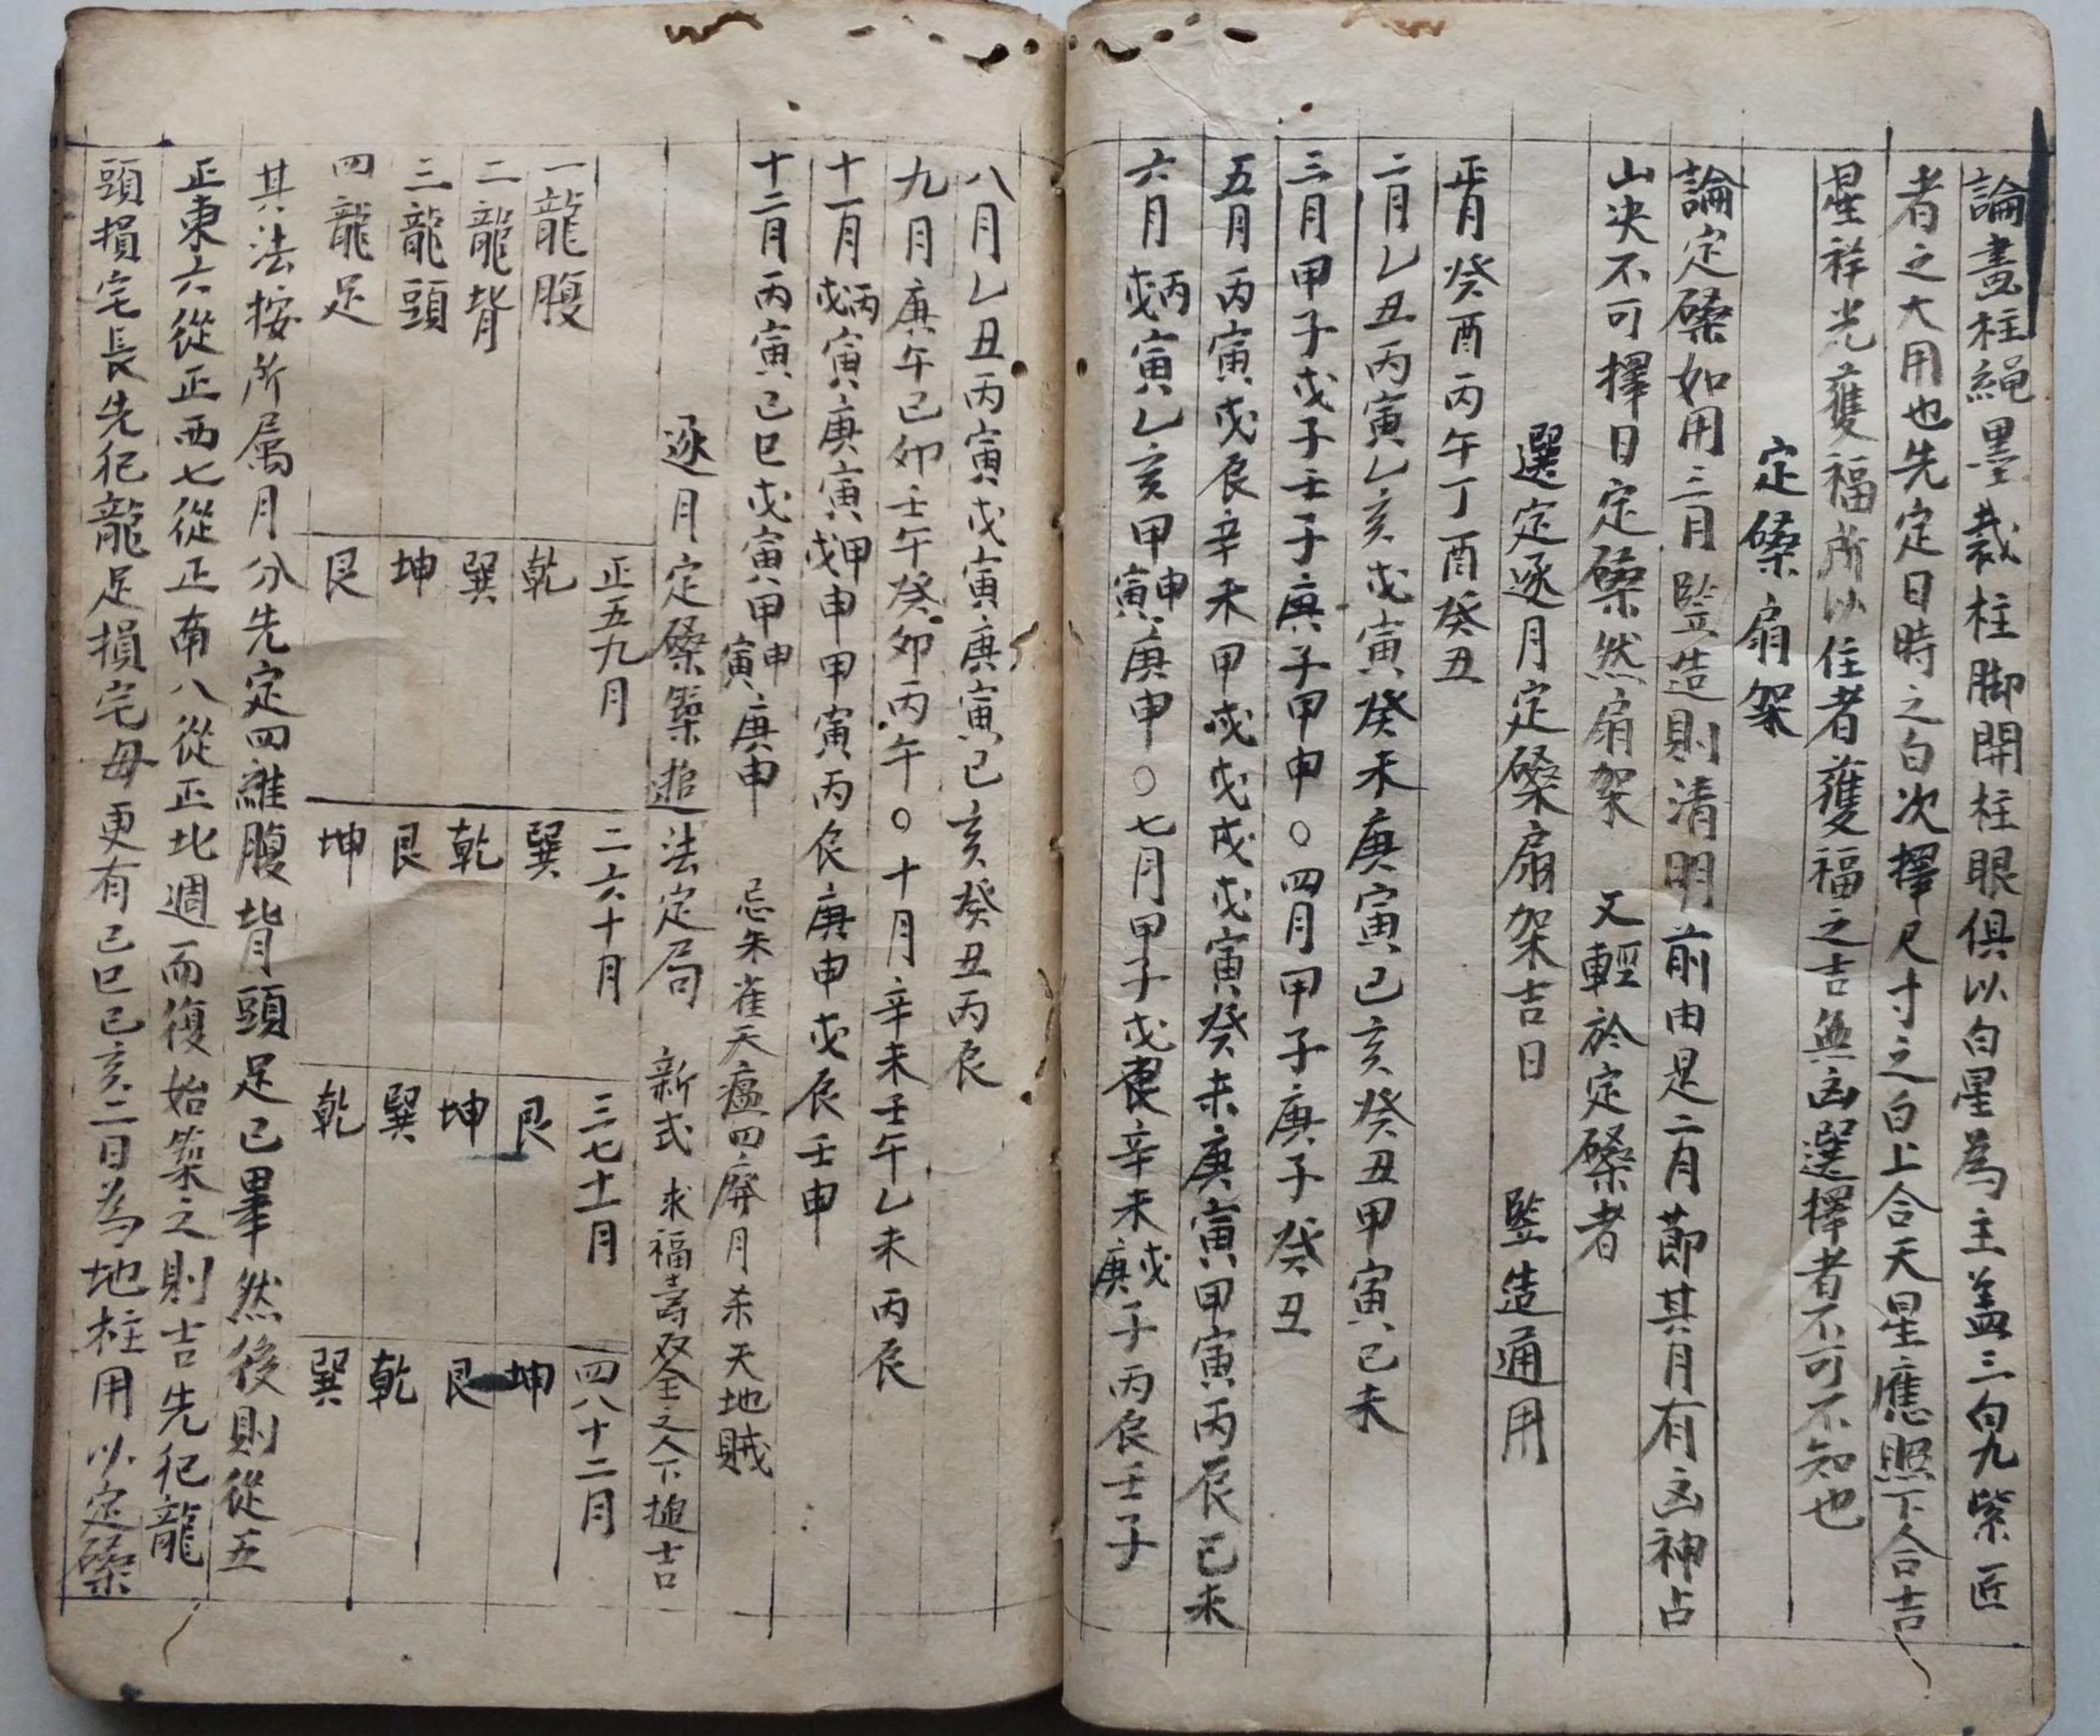 論畫柱繩墨裁柱脚開柱眼俱以白星為主盖三白九紫匠
者之大用也先定日時之白次擇尺寸之白上合天星應照下合吉
星祥光雙福所以住者獲福之吉無凶選擇者不可不知也
定磉扇架
論定磉如用三月竪造則清明前由是二月節其月有凶神占
山决不可擇日定磉然扇架 又輕於定磉者
選定逐月定磉扇架吉日 竪造通用
正月癸酉丙午丁酉癸丑
二月乙丑丙寅乙亥戊寅癸未庚寅己亥癸丑甲寅己未
三月甲子戊子壬子庚子甲申〇四月甲子庚子癸丑
五月丙寅戊辰辛未甲戌戊戌戊寅癸未庚寅甲寅丙辰己未
六月丙戊寅乙亥甲申寅庚申〇七月甲子戊辰辛未戊庚子丙辰壬子
八月乙丑丙寅戊寅庚寅己亥癸丑丙辰
九月庚午己卯壬午癸卯丙午〇十月辛未壬午乙未丙辰
十一月丙戊寅庚寅甲戊申甲寅丙辰庚申戊辰壬申
十二月丙寅己巳戊寅甲申寅庚申 忌朱雀天瘟四廢月杀天地賊
逐月定磉築法定局 新式 求福壽双全 吉
正五九月 二六十月 三七十一月 四八十二月
一龍腹 乾 巽 艮 坤
二龍背 巽 乾 坤 艮
三龍頭 坤 艮 巽 乾
四龍足 艮 坤 乾 巽
其法按所属月分先定四維腹背頭足已畢然後則從五
正東六從正西七從正南八從正北週而復始築之則吉先犯龍
頭損宅長先犯龍足損宅母更有己巳己亥二日為地柱用以定磉